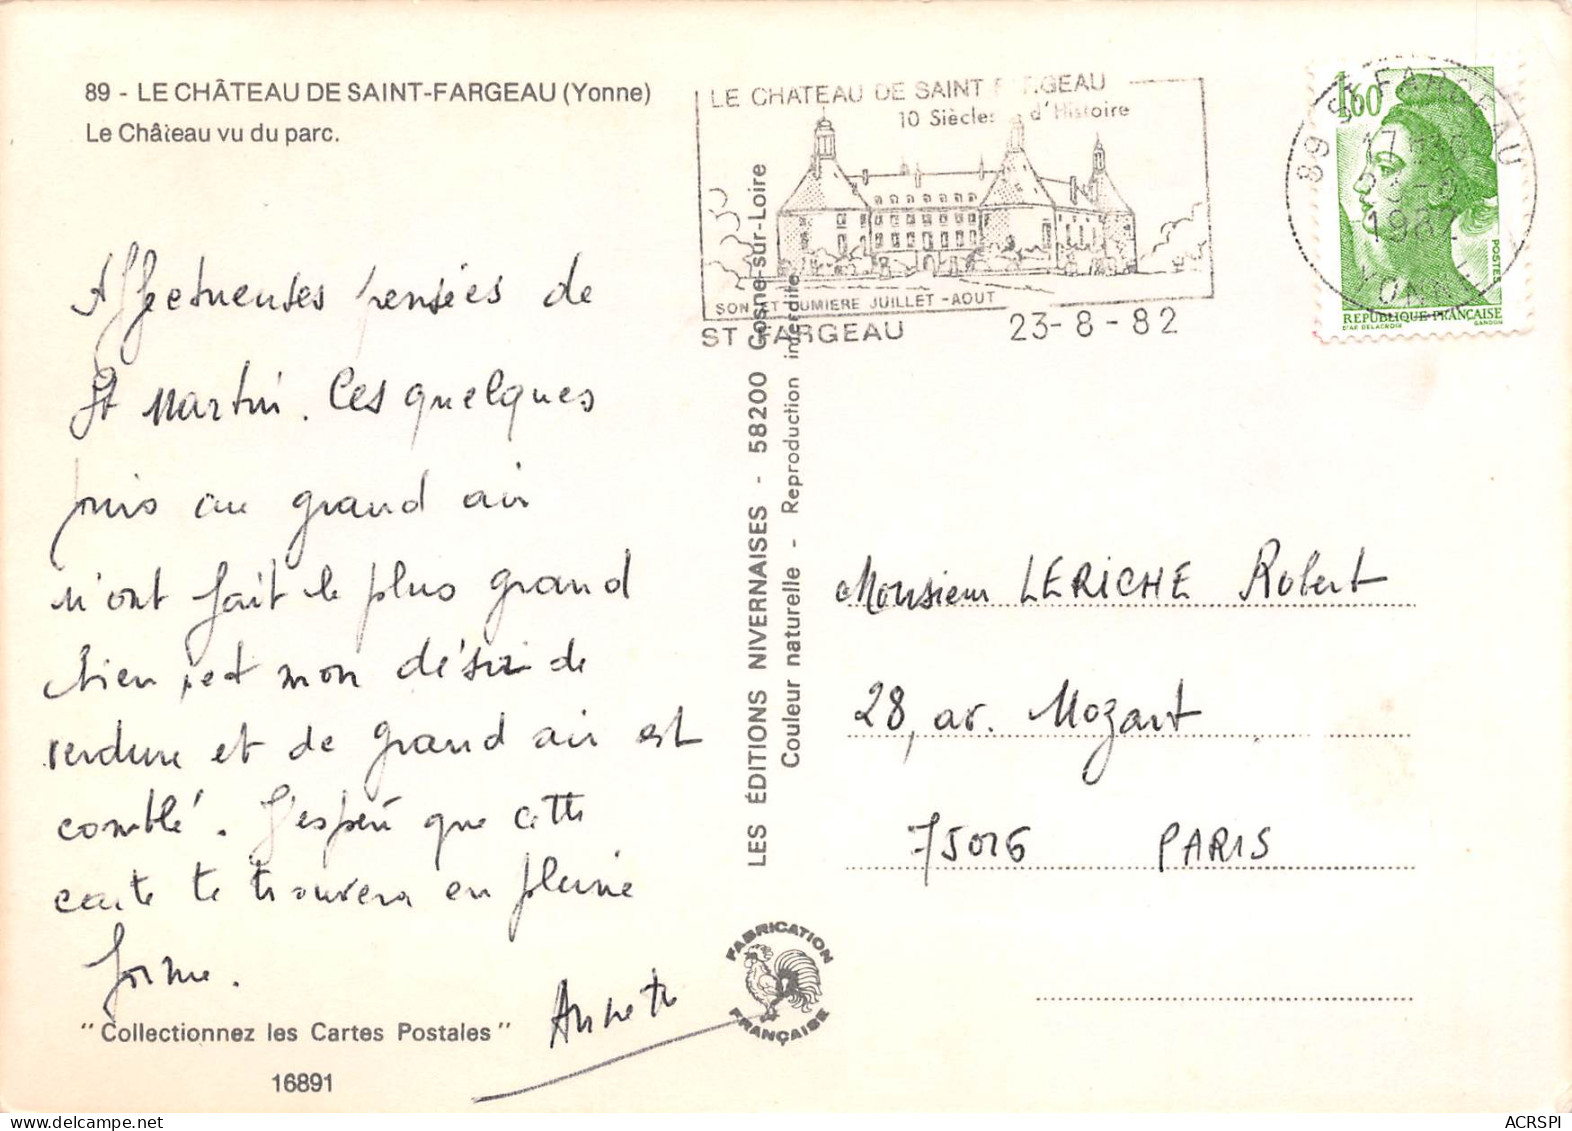 89 - LE CHÂTEAU DE SAINT-FARGEAU (Yonne)
Le Château vu du parc.
Affectueuses pensées de
St Martin. Ces quelques
jours au grand air
m'ont fait le plus grand
bien, et mon désir de
verdure et de grand air est
comblé. J'espère que cette
carte te trouvera en pleine
forme.
Annette
"Collectionnez les Cartes Postales"
16891
LE CHATEAU DE SAINT FARGEAU
10 Siècles d'Histoire
SON ET LUMIERE JUILLET - AOUT
ST FARGEAU 23-8-82
LES ÉDITIONS NIVERNAISES - 58200 Cosne-sur-Loire
Couleur naturelle - Reproduction interdite
FABRICATION
FRANÇAISE
1,60
POSTES
REPUBLIQUE FRANÇAISE
D'AP. DELACROIX GANDON
89 ST FARGEAU
17H
23-8
1982
YONNE
Monsieur LERICHE Robert
28, av. Mozart
75016 PARIS
ACRSPI